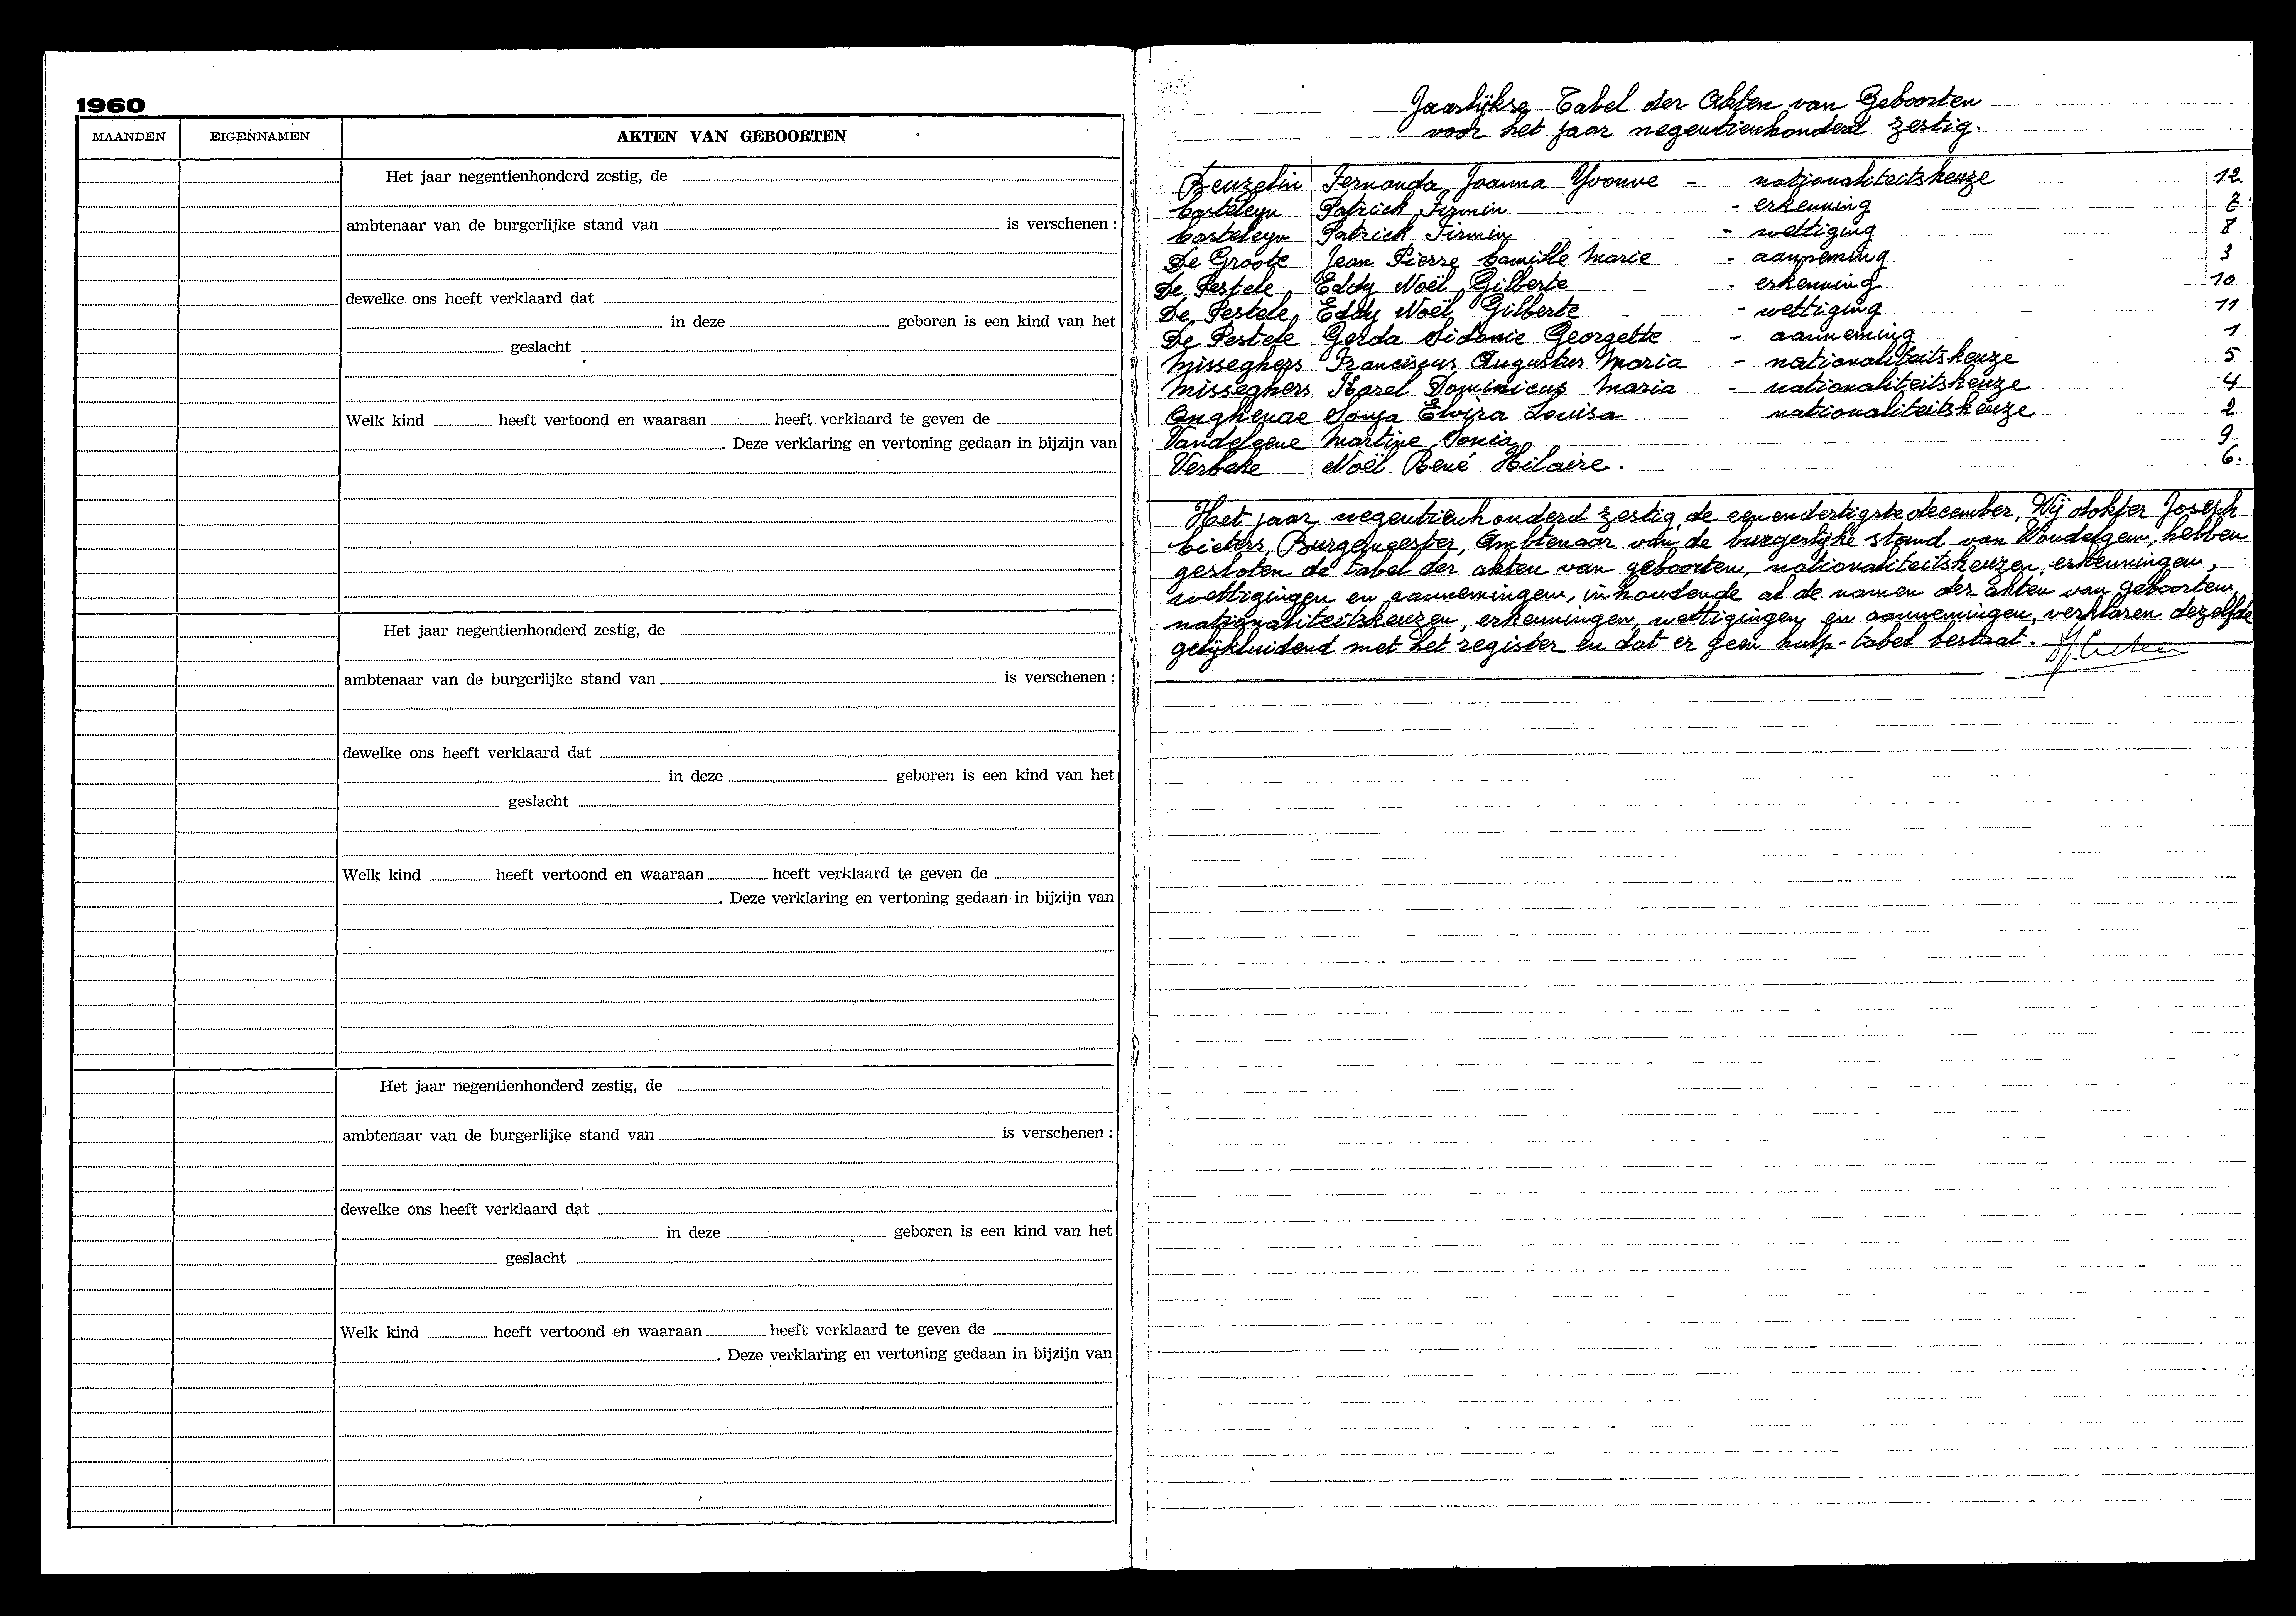 1960
MAANDEN EIGENNAMEN AKTEN VAN GEBOORTEN
Het jaar negentienhonderd zestig, de
ambtenaar van de burgerlijke stand van is verschenen :
dewelke ons heeft verklaard dat
in deze geboren is een kind van het
geslacht
Welk kind heeft vertoond en waaraan heeft verklaard te geven de
. Deze verklaring en vertoning gedaan in bijzijn van
Het jaar negentienhonderd zestig, de
ambtenaar van de burgerlijke stand van is verschenen :
dewelke ons heeft verklaard dat
in deze geboren is een kind van het
geslacht
Welk kind heeft vertoond en waaraan heeft verklaard te geven de
. Deze verklaring en vertoning gedaan in bijzijn van
Het jaar negentienhonderd zestig, de
ambtenaar van de burgerlijke stand van is verschenen :
dewelke ons heeft verklaard dat
in deze geboren is een kind van het
geslacht
Welk kind heeft vertoond en waaraan heeft verklaard te geven de
. Deze verklaring en vertoning gedaan in bijzijn van
Jaarlijkse Tabel der Akten van Geboorten
voor het jaar negentienhonderd zestig.
Beuzelin Fernanda Joanna Yvonne - nationaliteitskeuze 12
Casteleyn Patrick Firmin - erkenning 7
Casteleyn Patrick Firmin - wettiging 8
De Groote Jean Pierre Camille Marie - aanneming 3
De Pestele Eddy Noël Gilberte - erkenning 10
De Pestele Eddy Noël Gilberte - wettiging 11
De Pestele Gerda Sidonie Georgette - aanneming 1
Misseghers Franciscus Augustus Maria - nationaliteitskeuze 5
Misseghers Karel Dominicus Maria - nationaliteitskeuze 4
Onghenae Sonja Elvira Louisa nationaliteitskeuze 2
Vandelgene Martine Sonia 9
Verbeke Noël René Hilaire. 6.
Het jaar negentienhonderd zestig, de eenendertigste december, Wij dokter Joseph
Cieters, Burgemeester, Ambtenaar van de burgerlijke stand van Wondelgem, hebben
gesloten de tabel der akten van geboorten, nationaliteitskeuzen, erkenningen,
wettigingen en aannemingen, inhoudende al de namen der akten van geboorten,
nationaliteitskeuzen, erkenningen, wettigingen en aannemingen, verklaren dezelfde
gelijkluidend met het register en dat er geen hulp-tabel bestaat.